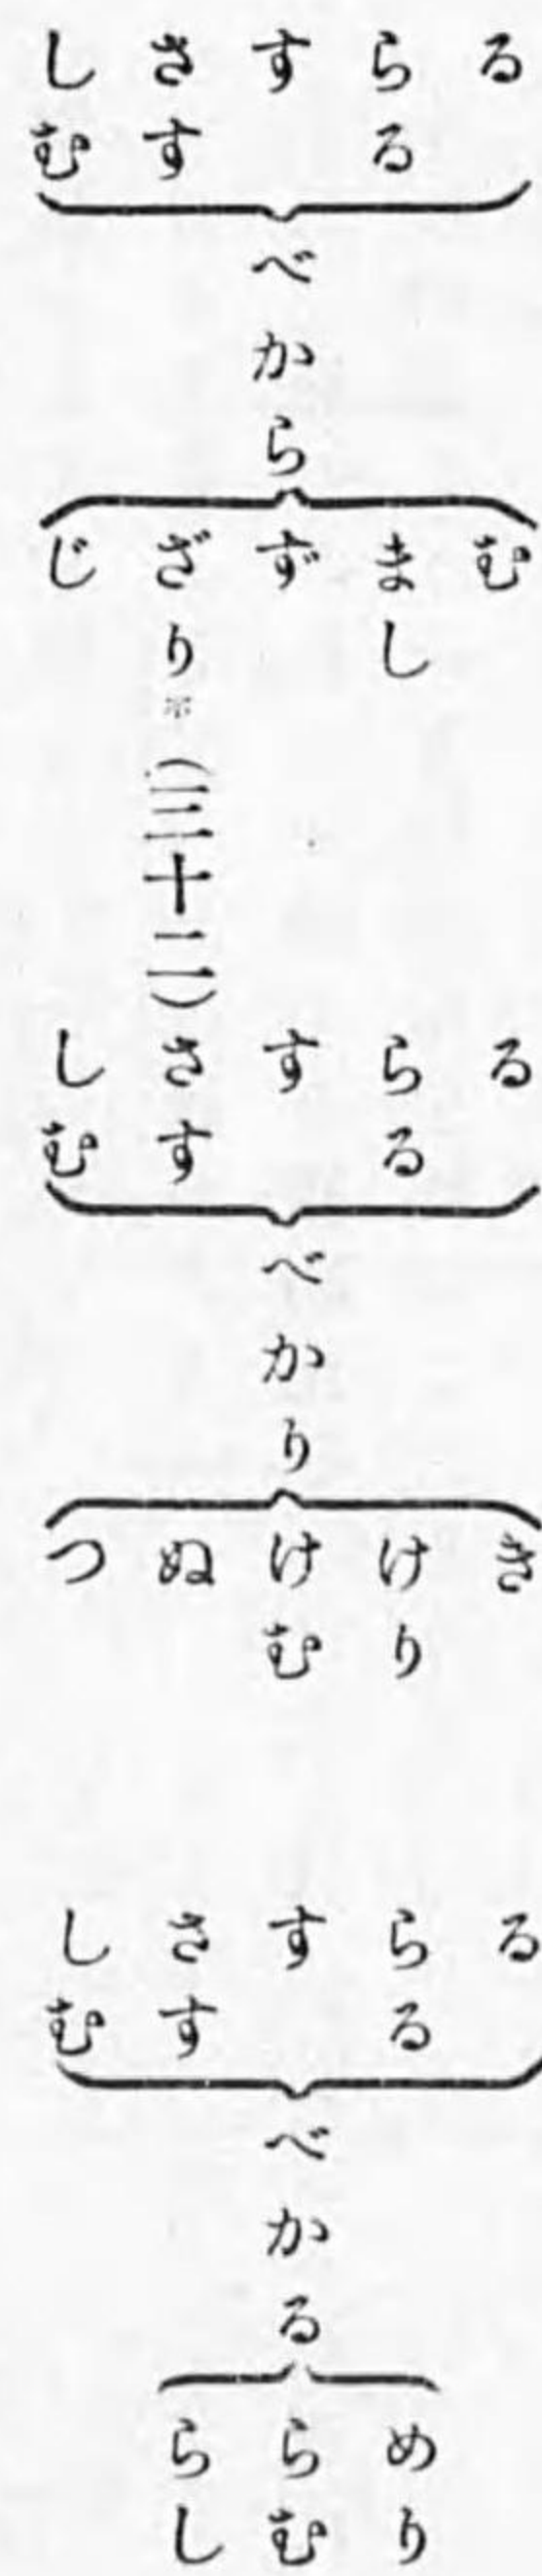 る
らる
す
さす
しむ
べから
む
まし
ず
ざり*(三十二)
じ
る
らる
す
さす
しむ
べかり
き
けり
けむ
ぬ
つ
る
らる
す
さす
しむ
べかる
めり
らむ
らし